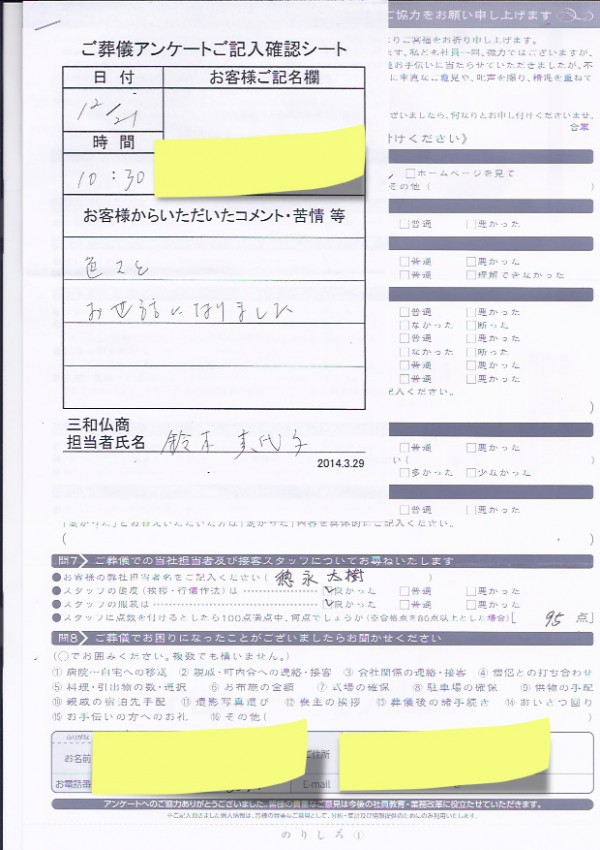 ご協力をお願い申し上げます
ご葬儀アンケートご記入確認シート
日 付
お客様ご記名欄
12/21
時 間
10:30
お客様からいただいたコメント・苦情 等
色々と
お世話になりました
三和仏商
担当者氏名
2014.3.29
りご冥福をお祈り申し上げます。
す。私ども社員一同、微力ではございますが、
お手伝いに当たらせていただきましたが、不
ざいましたら、何なりとお申し付けくださいませ。
合掌
付けください》
□ホームページを見て
その他(
□普通 □悪かった
□普通 □悪かった
□普通 □理解できなかった
□普通 □悪かった
□なかった □断った
□普通 □悪かった
□なかった □断った
□普通 □悪かった
□普通 □悪かった
記入ください。
)
□普通 □悪かった
い(
□多かった □少なかった
□普通 □悪かった
(
問7 ご葬儀での当社担当者及び接客スタッフについてお尋ねいたします
●お客様の弊社担当者名をご記入ください( 穂永 大樹 )
●スタッフの態度(挨拶・行儀作法)は ☑良かった □普通 □悪かった
●スタッフの服装は ☑良かった □普通 □悪かった
●スタッフに点数を付けるとしたら100点満点中、何点でしょうか(※合格点を80点以上とした場合)[ 95 点]
問8 ご葬儀でお困りになったことがございましたらお聞かせください
(○でお囲みください。複数でも構いません。)
①病院…自宅への移送 ②親戚・町内会への連絡・接客 ③会社関係の連絡・接客 ④僧侶との打ち合わせ
⑤料理・引出物の数・選択 ⑥お布施の金額 ⑦式場の確保 ⑧駐車場の確保 ⑨供物の手配
⑩親戚の宿泊先手配 ⑪遺影写真選び ⑫喪主の挨拶 ⑬葬儀後の諸手続き ⑭おいさつ回り
⑮お手伝いの方へのお礼 ⑯その他(
お名前
ご住所
お電話番
E-mail
アンケートへのご協力ありがとうございました。皆様の貴重なご意見は今後の社員教育・業務改革に役立たせていただきます。
のりしろ①